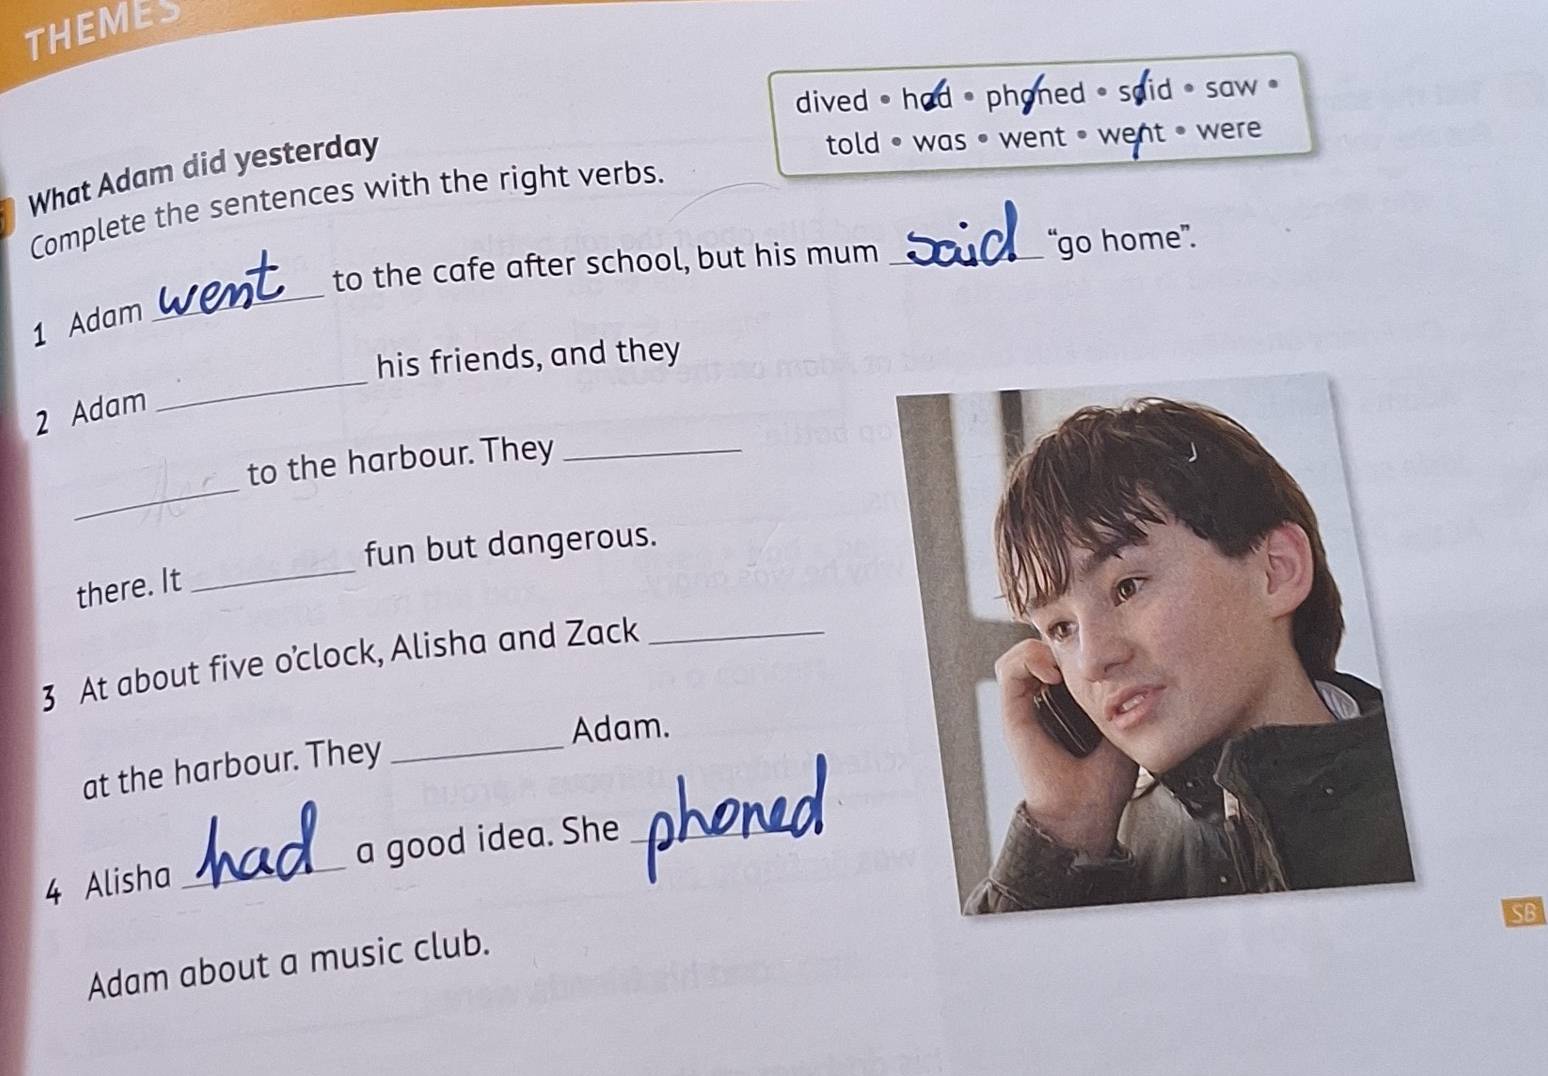 THEMES
dived • had • phoned • said • saw •
told • was • went • went • were
What Adam did yesterday
Complete the sentences with the right verbs.
1 Adam went to the cafe after school, but his mum said “go home”.
2 Adam ____________ his friends, and they
____________ to the harbour. They ____________
there. It ____________ fun but dangerous.
3 At about five o’clock, Alisha and Zack ____________
at the harbour. They ____________ Adam.
4 Alisha had a good idea. She phoned
Adam about a music club.
SB